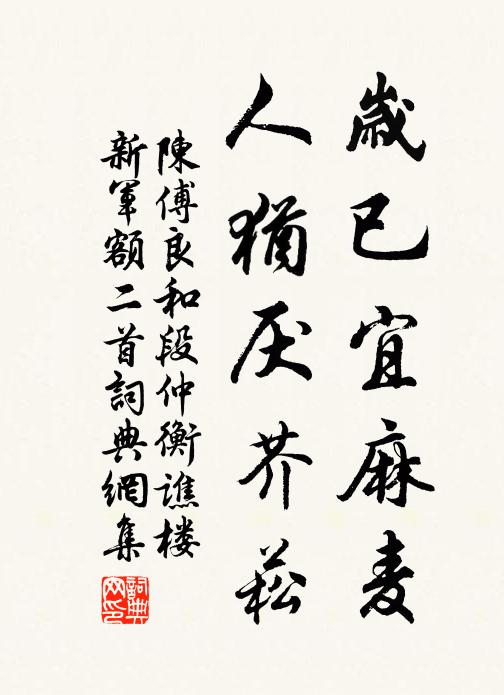 歲已宜麻麦
人猶厌芥菘
陳傅良和段仲衡譙楼
新軍額二首詞典網集
詞典网印